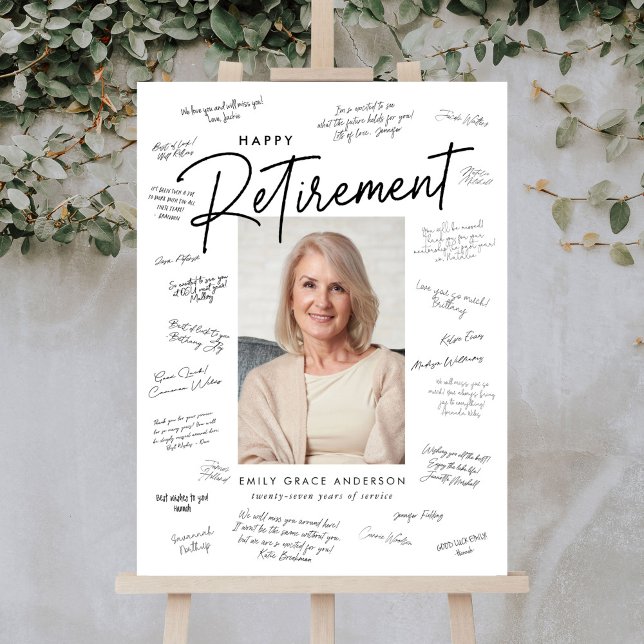 We love you and will miss you!
Love, Jackie
I'm so excited to see
what the future holds for you!
Lots of love, Jennifer
Jacob Walters
Best of Luck!
HAPPY
Retirement
Natalie
Mitchell
IT'S BEEN SUCH A JOY
TO WORK WITH YOU ALL
THESE YEARS!
BRANDON
You will be missed!
Thank you for your
mentorship the past year!
xo Natalie
So excited to see you
at
Love you so much!
Brittany
Best of luck to you
Bethany Joy
Kelsie Evans
Madison Williams
Good Luck!
Cameron Wiles
We will miss you so
much! You always bring
joy to everything!
Amanda Wiles
Thank you for your service
for so many years! You will
be deeply missed around here.
Best Wishes - Dave
Wishing you all the best!
Enjoy the lake life!
Jeanette Marshall
James
Holland
EMILY GRACE ANDERSON
twenty-seven years of service
Best wishes to you!
Hannah
We will miss you around here!
It won't be the same without you,
but we are so excited for you!
Katie
Jennifer Fielding
Savannah
Northup
GOOD LUCK EMILY